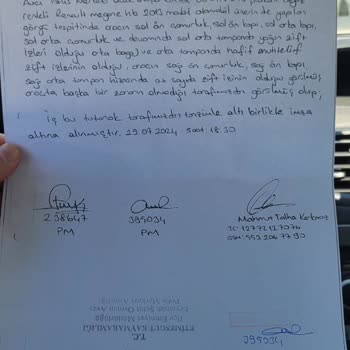 renkli Renault megne hb 2001 model otomobil üzerinde yapılan
görgü tespitinde aracın sol ön çamurluk, sol ön kapı, sol orta kapı,
sol arka çamurluk ve devamında sol arka tamponda yoğun zift
izleri olduğu arka bagaj ve arka tamponda hafif
zift izlerinin olduğu, aracın sağ ön çamurluk, sağ ön kapı,
sağ arka tampon hizasında az sayıda zift izinin olduğu görülmüş,
araçta başka bir zararın olmadığı tarafımızdan görülmüş olup,
iş bu tutanak tarafımızdan tanzimle altı birlikte imza
altına alınmıştır. 29.07.2024 saat: 18:30
258647
PM
395034
PM
Mahmut Talha Korkmaz
TC: 12772127076
GSM: 553 206 77 90
T.C.
ETİMESGUT KAYMAKAMLIĞI
İlçe Emniyet Müdürlüğü
Polis Merkezi Amirliği
395034